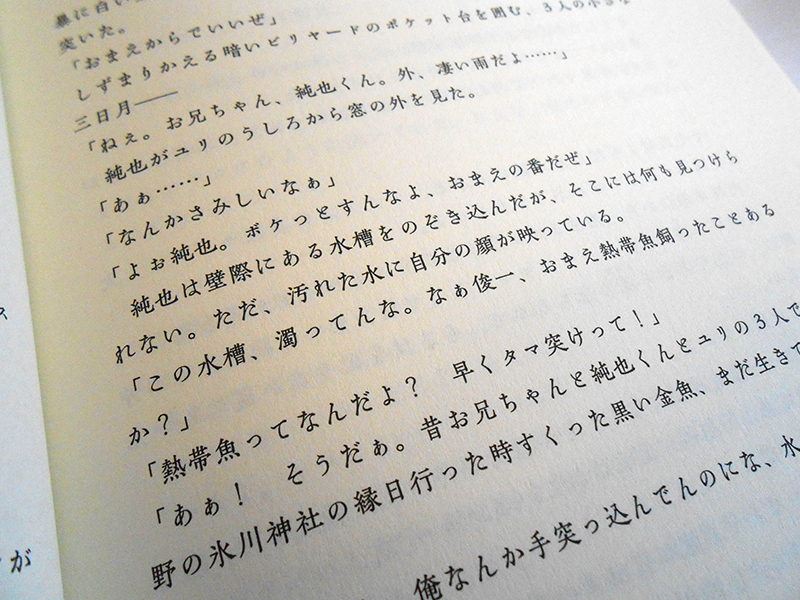 突いた。
「おまえからでいいぜ」
しずまりかえる暗いビリヤードのポケット台を囲む、3人の小さな
三日月──
「ねぇ。お兄ちゃん、純也くん。外、凄い雨だよ……」
純也がユリのうしろから窓の外を見た。
「あぁ……」
「なんかさみしいなぁ」
「よぉ純也。ボケっとすんなよ、おまえの番だぜ」
純也は壁際にある水槽をのぞき込んだが、そこには何も見つけら
れない。ただ、汚れた水に自分の顔が映っている。
「この水槽、濁ってんな。なぁ俊一、おまえ熱帯魚飼ったことある
か?」
「熱帯魚ってなんだよ? 早くタマ突けって!」
「あぁ! そうだぁ。昔お兄ちゃんと純也くんとユリの3人で
野の氷川神社の縁日行った時すくった黒い金魚、まだ生きて
俺なんか手突っ込んでんのにな、水
が